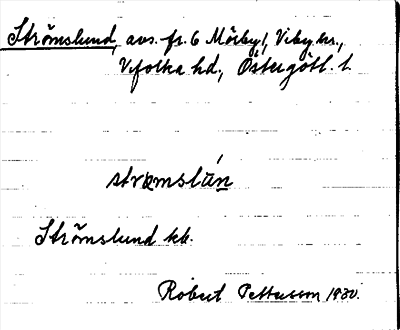 Strömslund, avs. fr. 6 Mörby, Viby sn.,
Vifolka hd., Östergötl. l.
strømslún
Strömslund kb.
Robert Pettersson 1930.